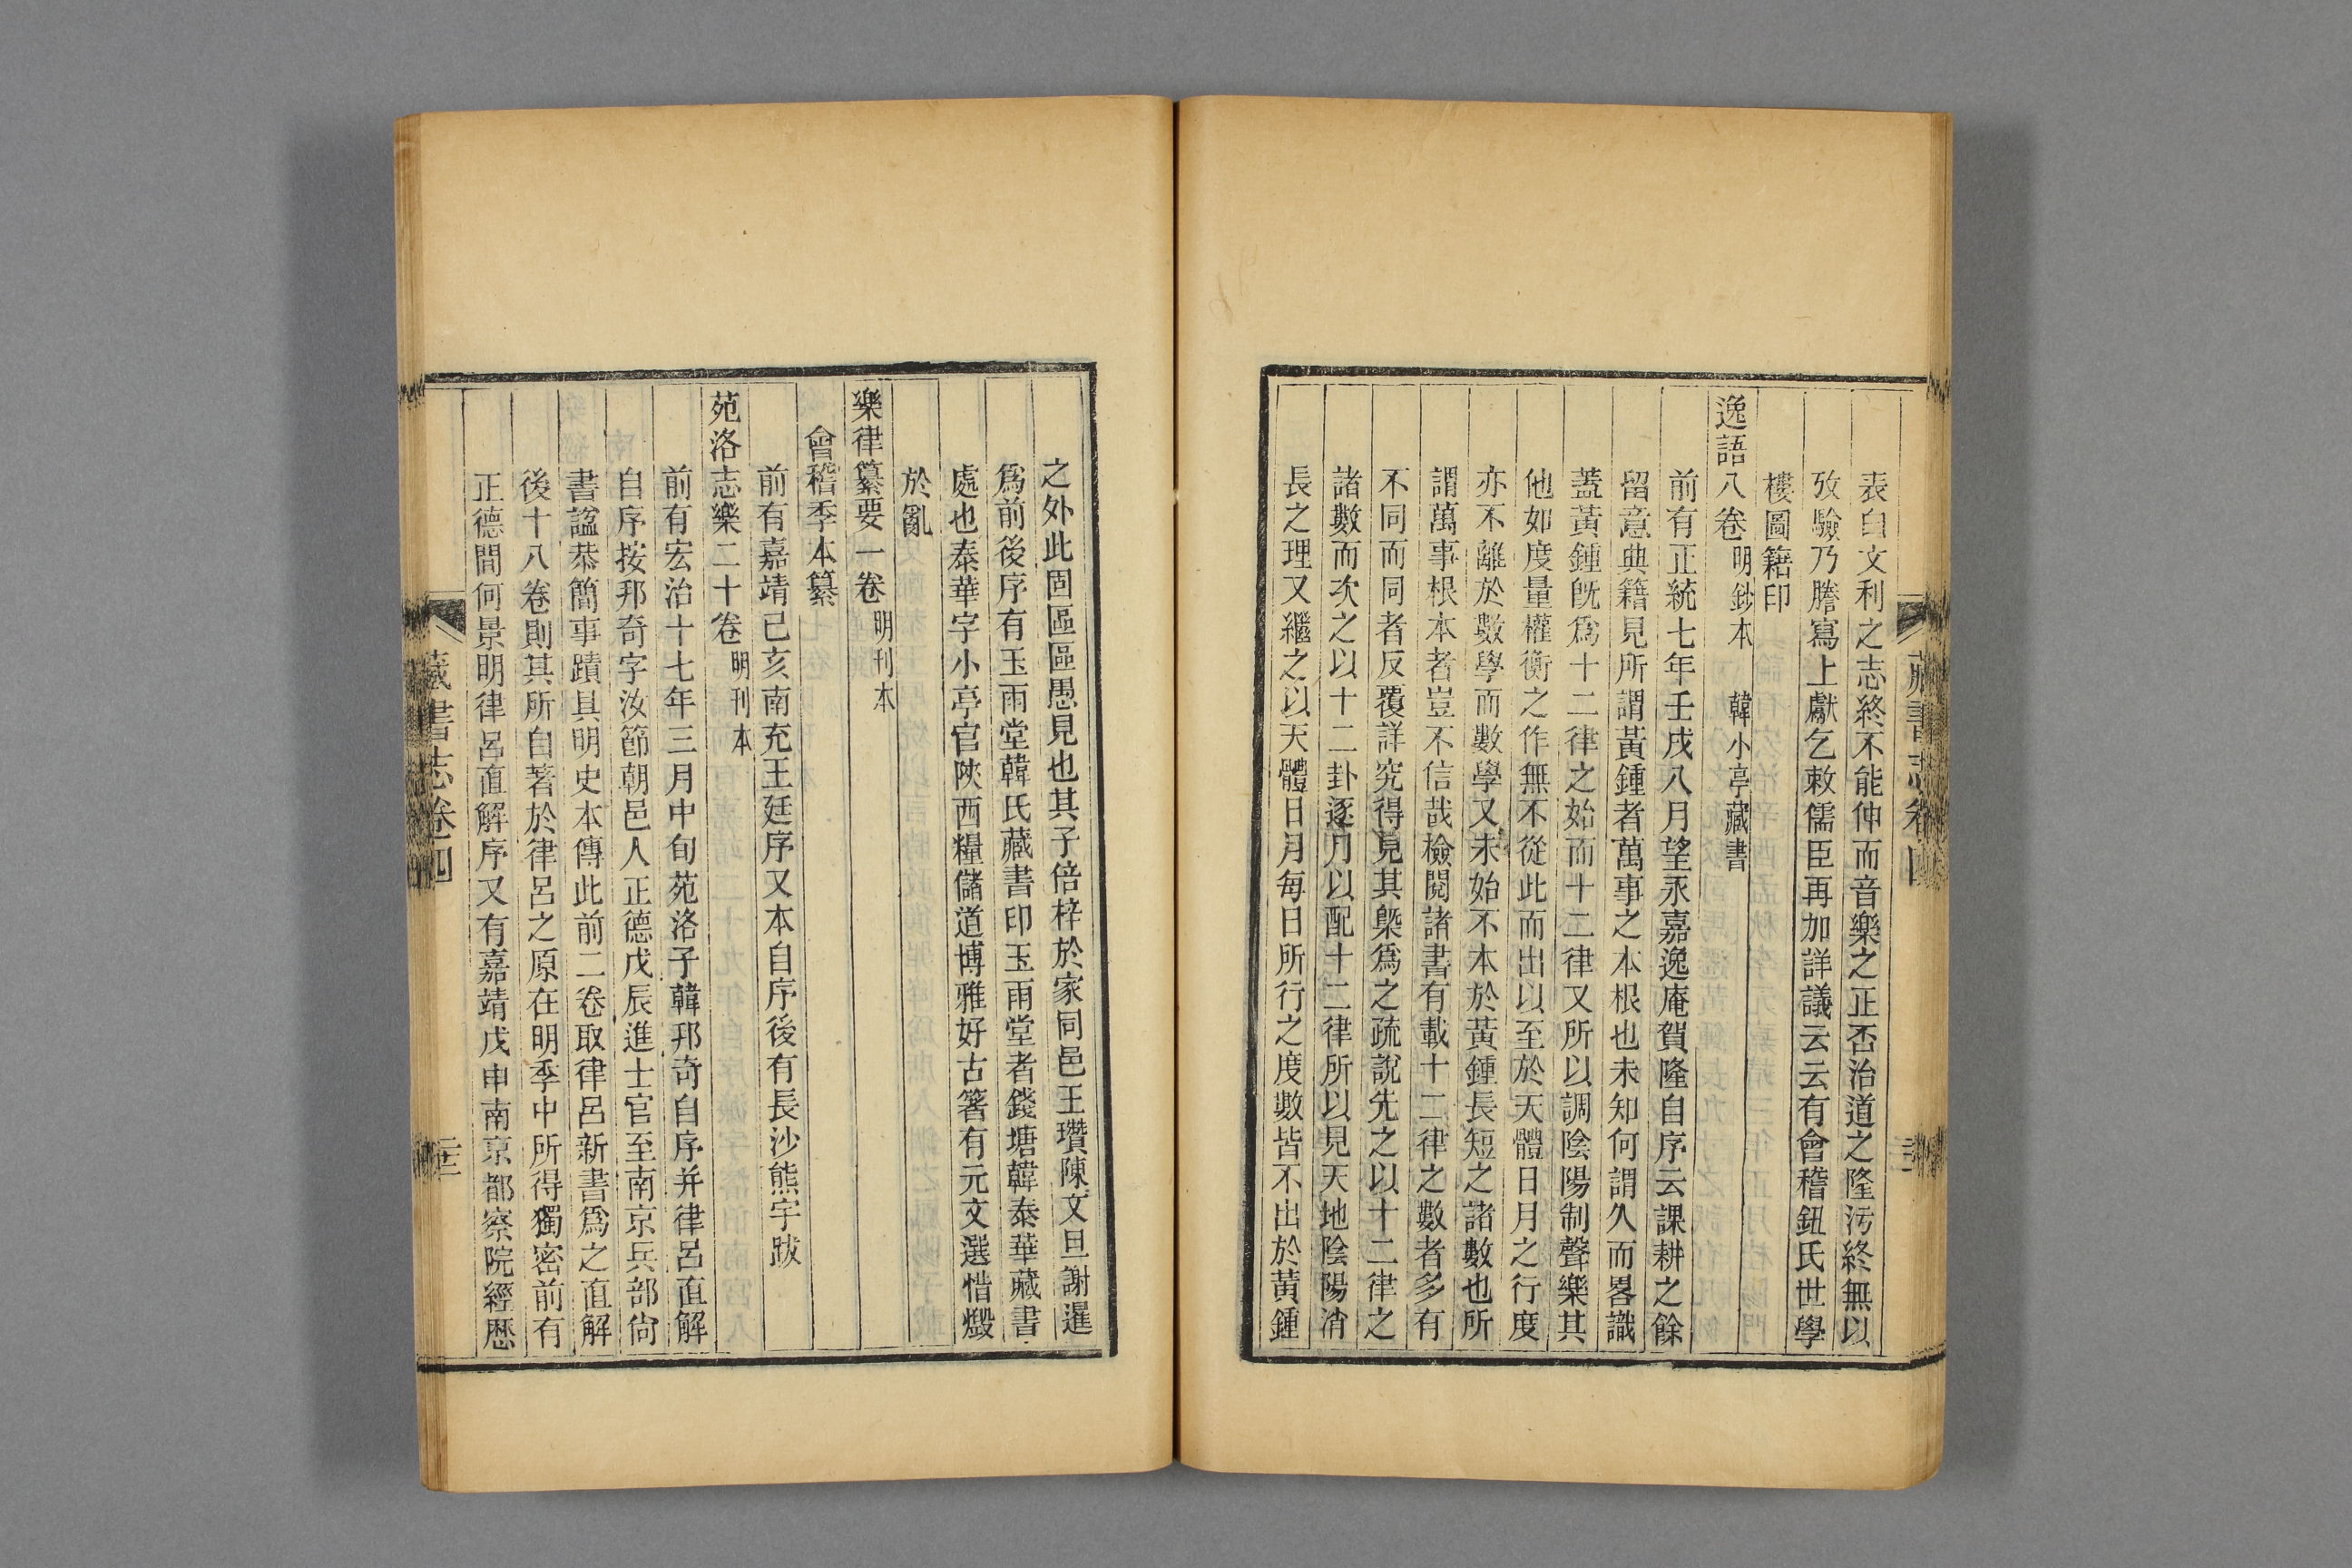 表白文利之志終不能伸而音樂之正否治道之隆污終無以
攷驗乃謄寫上獻乞敕儒臣再加詳議云云有會稽鈕氏世學
樓圖籍印
逸語八卷 明鈔本 韓小亭藏書
前有正統七年壬戌八月望永嘉逸庵賀隆自序云課耕之餘
留意典籍見所謂黃鍾者萬事之本根也未知何謂久而畧識
蓋黃鍾旣爲十二律之始而十二律又所以調陰陽制聲樂其
他如度量權衡之作無不從此而出以至於天體日月之行度
亦不離於數學而數學又未始不本於黃鍾長短之諸數也所
謂萬事根本者豈不信哉檢閱諸書有載十二律之數者多有
不同而同者反覆詳究得見其槩爲之疏說先之以十二律之
諸數而次之以十二卦逐月以配十二律所以見天地陰陽消
長之理又繼之以天體日月每日所行之度數皆不出於黃鍾
之外此固區區愚見也其子倍梓於家同邑王瓚陳文旦謝暹
爲前後序有玉雨堂韓氏藏書印玉雨堂者錢塘韓泰華藏書
處也泰華字小亭官陝西糧儲道博雅好古箸有元文選惜燬
於亂
樂律纂要一卷 明刊本
會稽季本纂
前有嘉靖己亥南充王廷序又本自序後有長沙熊宇跋
苑洛志樂二十卷 明刊本
前有宏治十七年三月中旬苑洛子韓邦奇自序并律呂直解
自序按邦奇字汝節朝邑人正德戊辰進士官至南京兵部尙
書諡恭簡事蹟具明史本傳此前二卷取律呂新書爲之直解
後十八卷則其所自著於律呂之原在明季中所得獨密前有
正德間何景明律呂直解序又有嘉靖戊申南京都察院經歷
藏書志卷四